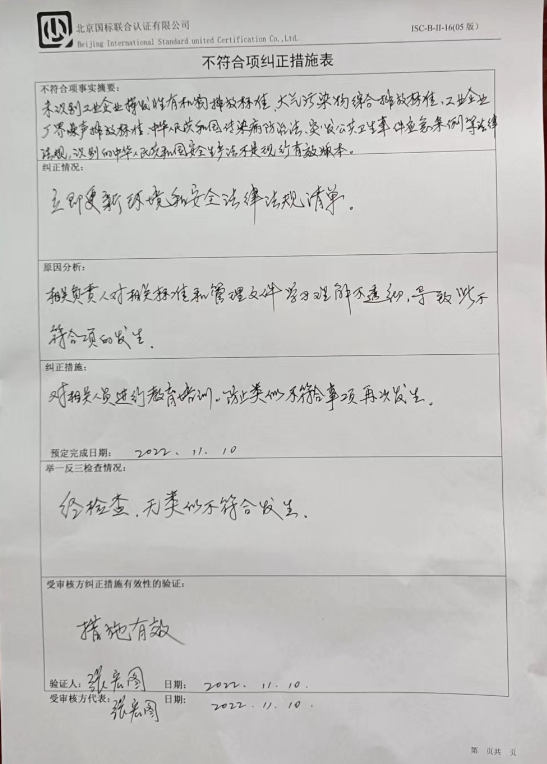 北京国标联合认证有限公司
ISC-B-II-16(05 版)
Beijing International Standard united Certification Co.,Ltd.
不符合项纠正措施表
不符合项事实摘要：
未识别工业企业挥发性有机物排放标准、大气污染物综合排放标准、工业企业
厂界噪声排放标准、中华人民共和国传染病防治法、突发公共卫生事件应急条例等法律
法规，识别的中华人民共和国安全生产法不是现行有效版本。
纠正情况：
立即更新环境和安全法律法规清单。
原因分析：
相关负责人对相关标准和管理文件学习理解不透彻，导致此不
符合项的发生。
纠正措施：
对相关人员进行教育培训。防止类似不符合事项再次发生。
预定完成日期： 2022. 11. 10
举一反三检查情况：
经检查，无类似不符合发生。
受审核方纠正措施有效性的验证：
措施有效
验证人：张宏图 日期： 2022. 11. 10.
受审核方代表：张宏图 日期： 2022. 11. 10.
第 页共 页